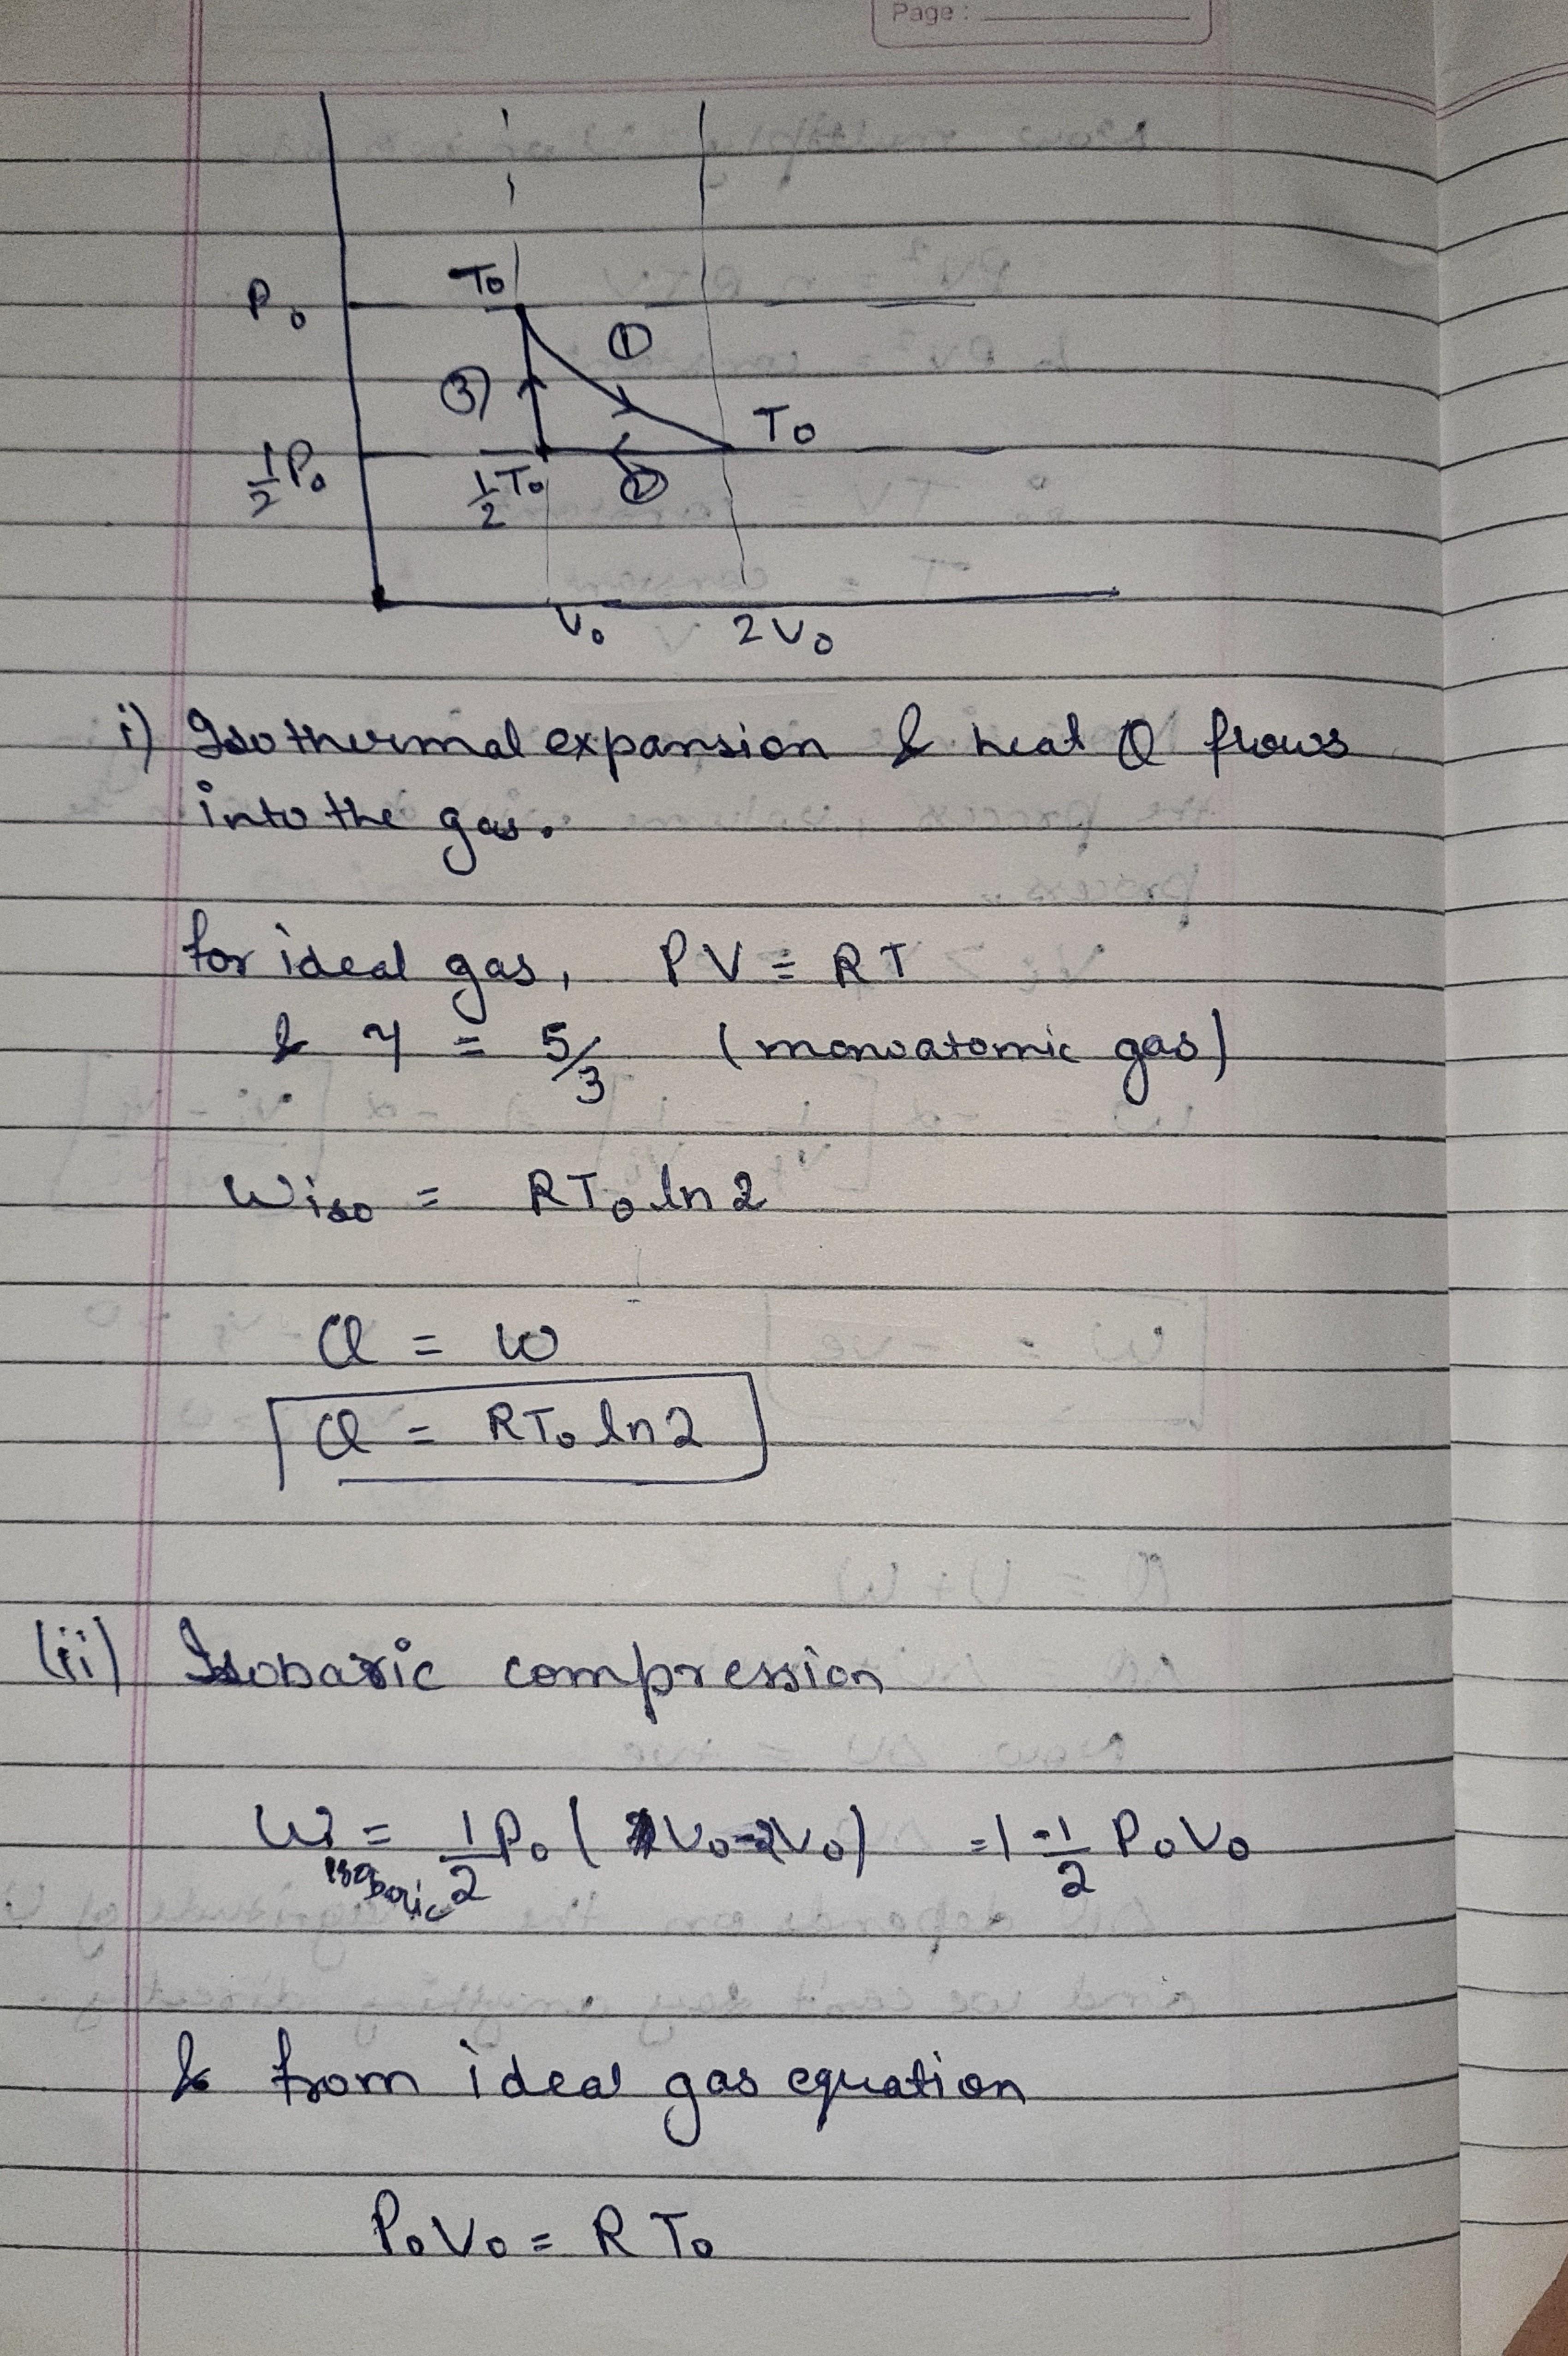 Page :
P₀
T₀
①
③
T₀
½P₀
½T₀
②
V₀
2V₀
i) Isothermal expansion & heat Q flows
into the gas.
for ideal gas, PV = RT
& γ = 5/3 (monoatomic gas)
Wiso = RT₀ ln 2
Q = W
Q = RT₀ ln2
(ii) Isobaric compression
W isobaric = ½P₀ ( V₀-2V₀) = -½ P₀V₀
& from ideal gas equation
P₀V₀ = RT₀